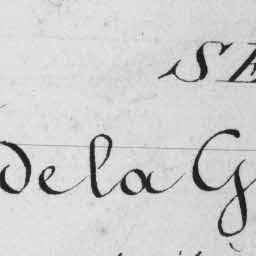 SE
de la G